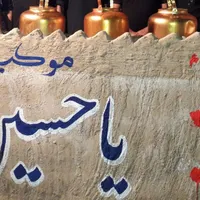 موکب
یا حسین